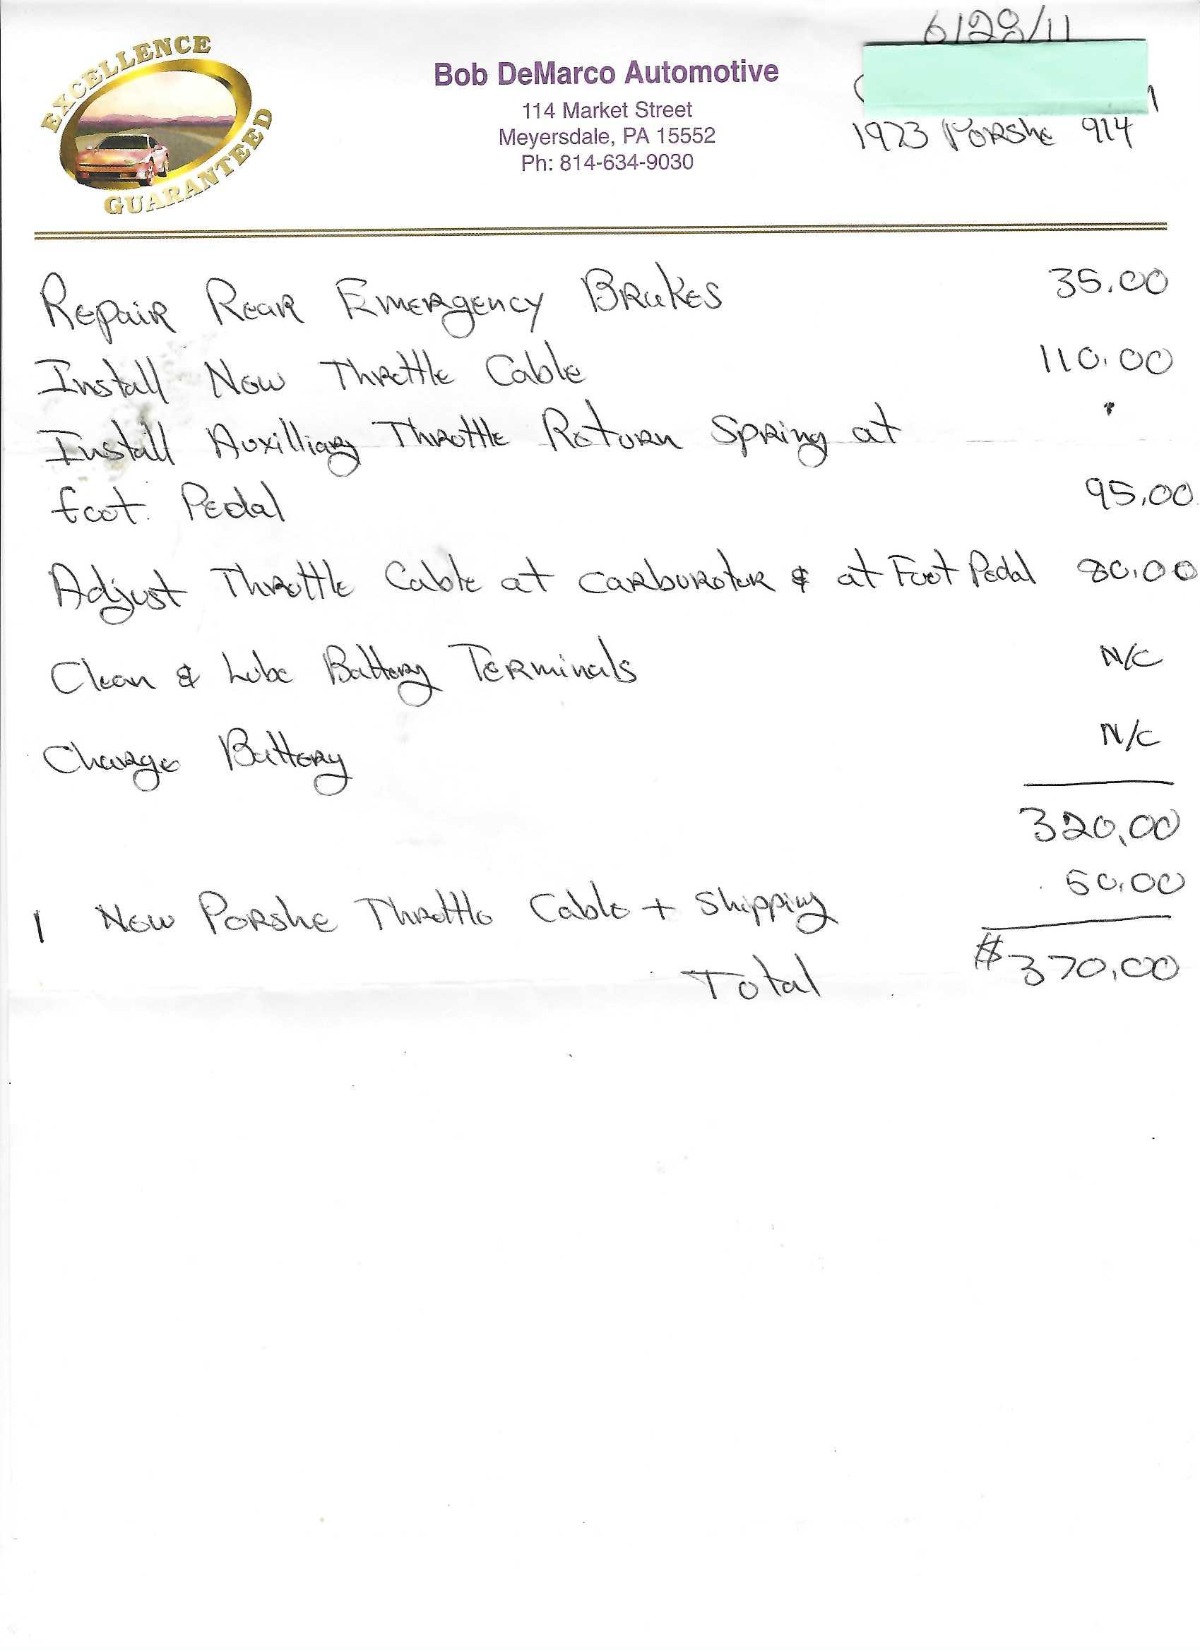 6/28/11
EXCELLENCE
GUARANTEED
Bob DeMarco Automotive
114 Market Street
Meyersdale, PA 15552
Ph: 814-634-9030
1973 Porshe 914
Repair Rear Emergency Brakes 35.00
Install New Throttle Cable 110.00
Install Auxilliary Throttle Return Spring at
foot Pedal 95.00
Adjust Throttle Cable at carburotor & at Foot Pedal 80.00
Clean & Lube Battery Terminals N/C
Charge Battery N/C
320.00
1 New Porshe Throttle Cable + Shipping 50.00
Total $370.00